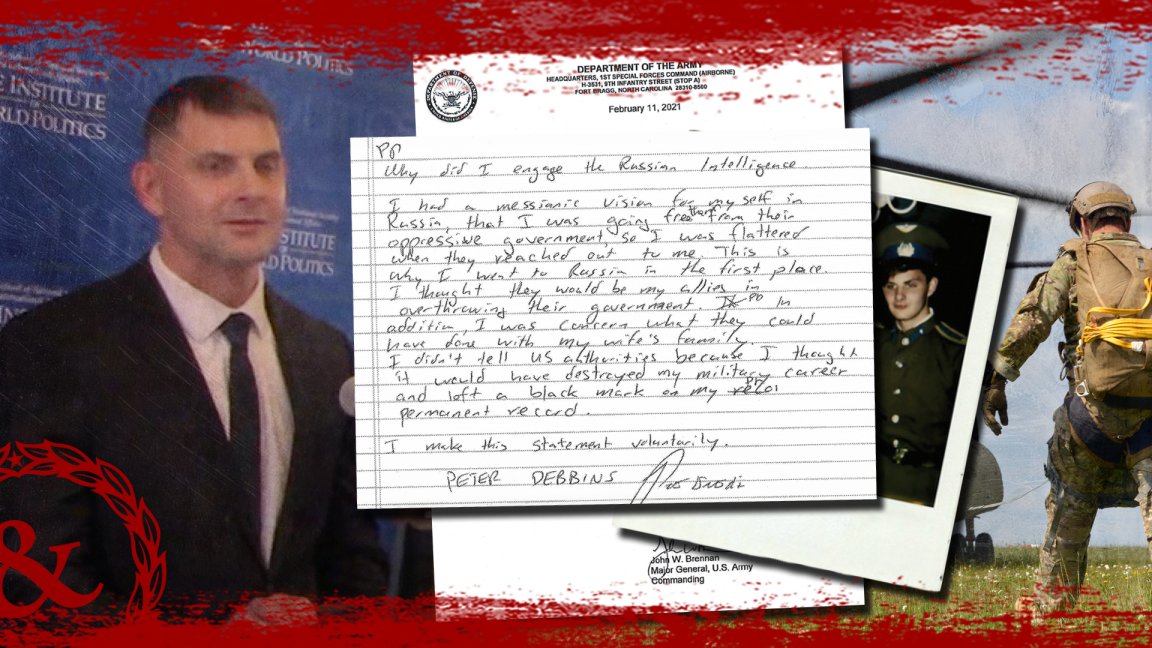 WORLD POLITICS
THE INSTITUTE
WORLD POLITICS
INSTITUTE
WORLD POLITICS
&
DEPARTMENT OF THE ARMY
HEADQUARTERS, 1ST SPECIAL FORCES COMMAND (AIRBORNE)
H-3531, 9TH INFANTRY STREET (STOP A)
FORT BRAGG, NORTH CAROLINA 28310-8500
February 11, 2021
PD
Why did I engage the Russian Intelligence
I had a messianic vision for my self in
Russia, that I was going free them from their
oppressive government, so I was flattered
when they reached out to me. This is
why I went to Russia in the first place.
I thought they would be my allies in
overthrowing their government. PD In
addition, I was concern what they could
have done with my wife's family.
I didn't tell US authorities because I thought
it would have destroyed my military career
and left a black mark on my PD
permanent record.
I make this statement voluntarily.
PETER DEBBINS
John W. Brennan
Major General, U.S. Army
Commanding